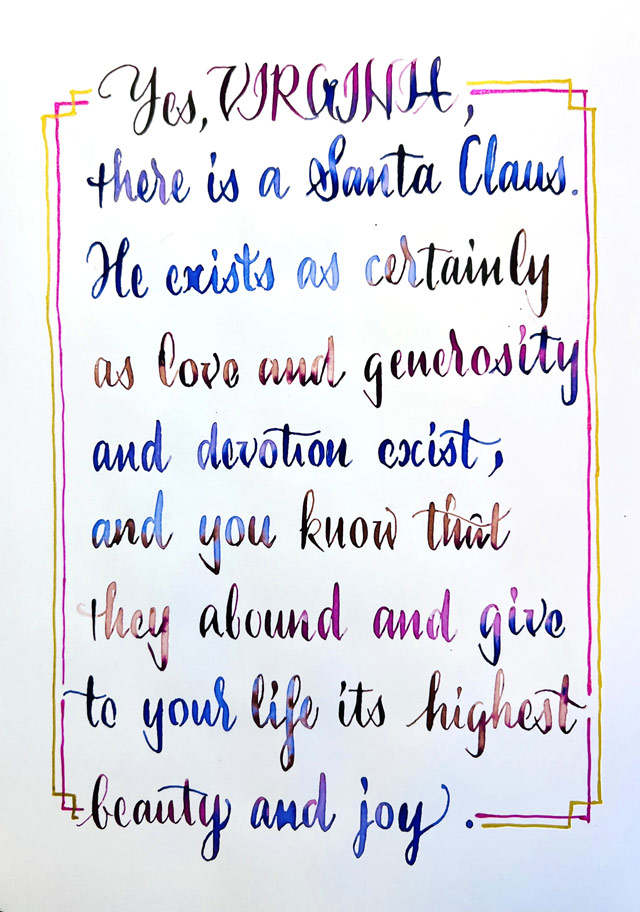 Yes, VIRGINIA,
there is a Santa Claus.
He exists as certainly
as love and generosity
and devotion exist,
and you know that
they abound and give
to your life its highest
beauty and joy.